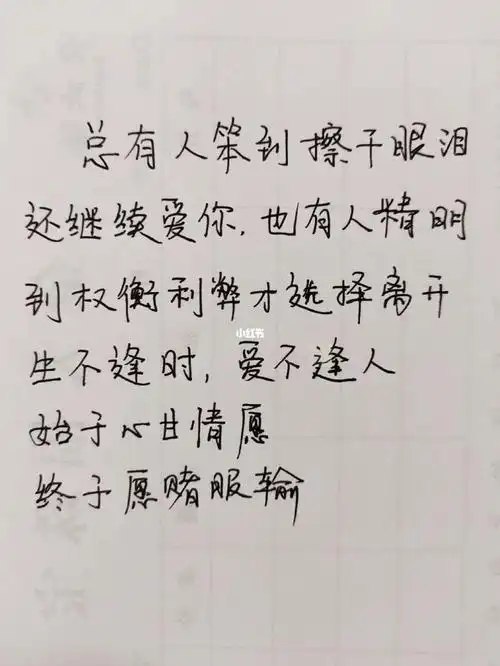 总有人笨到擦干眼泪
还继续爱你，也有人精明
到权衡利弊才选择离开
小红书
生不逢时，爱不逢人
始于心甘情愿
终于愿赌服输